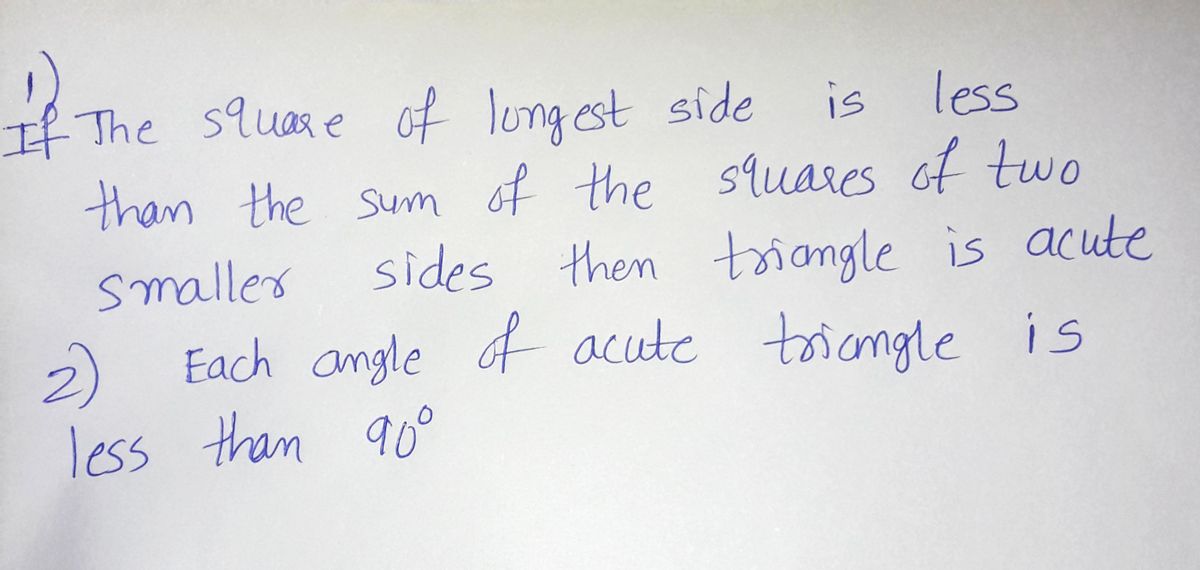 1)
If The square of longest side is less
than the sum of the squares of two
smaller sides then triangle is acute
2) Each angle of acute triangle is
less than 90°